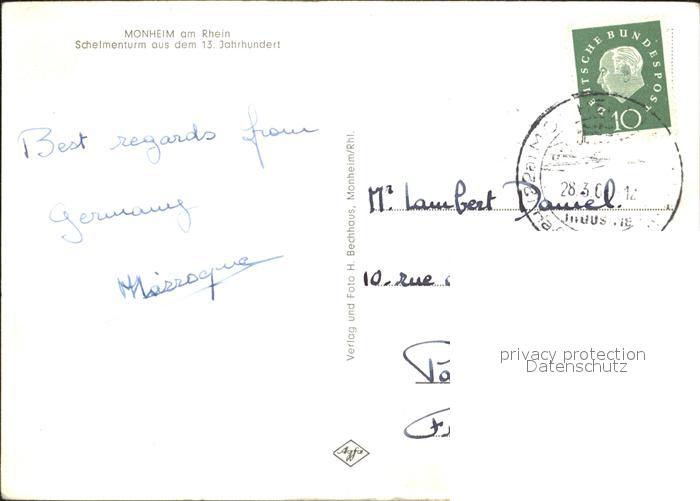 MONHEIM am Rhein
Schelmenturm aus dem 13. Jahrhundert
DEUTSCHE BUNDESPOST
10
28.3.
12
Best regards from
Germany
Verlag und Foto H. Bechhaus, Monheim/Rhl.
Mr. Lambert Daniel.
10. rue
privacy protection
Datenschutz
Agfa